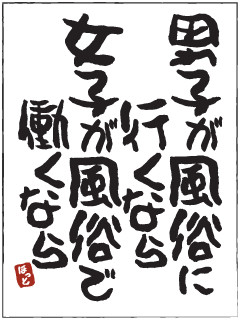 男子が風俗に
行くなら
女子が風俗で
働くなら
ほっと